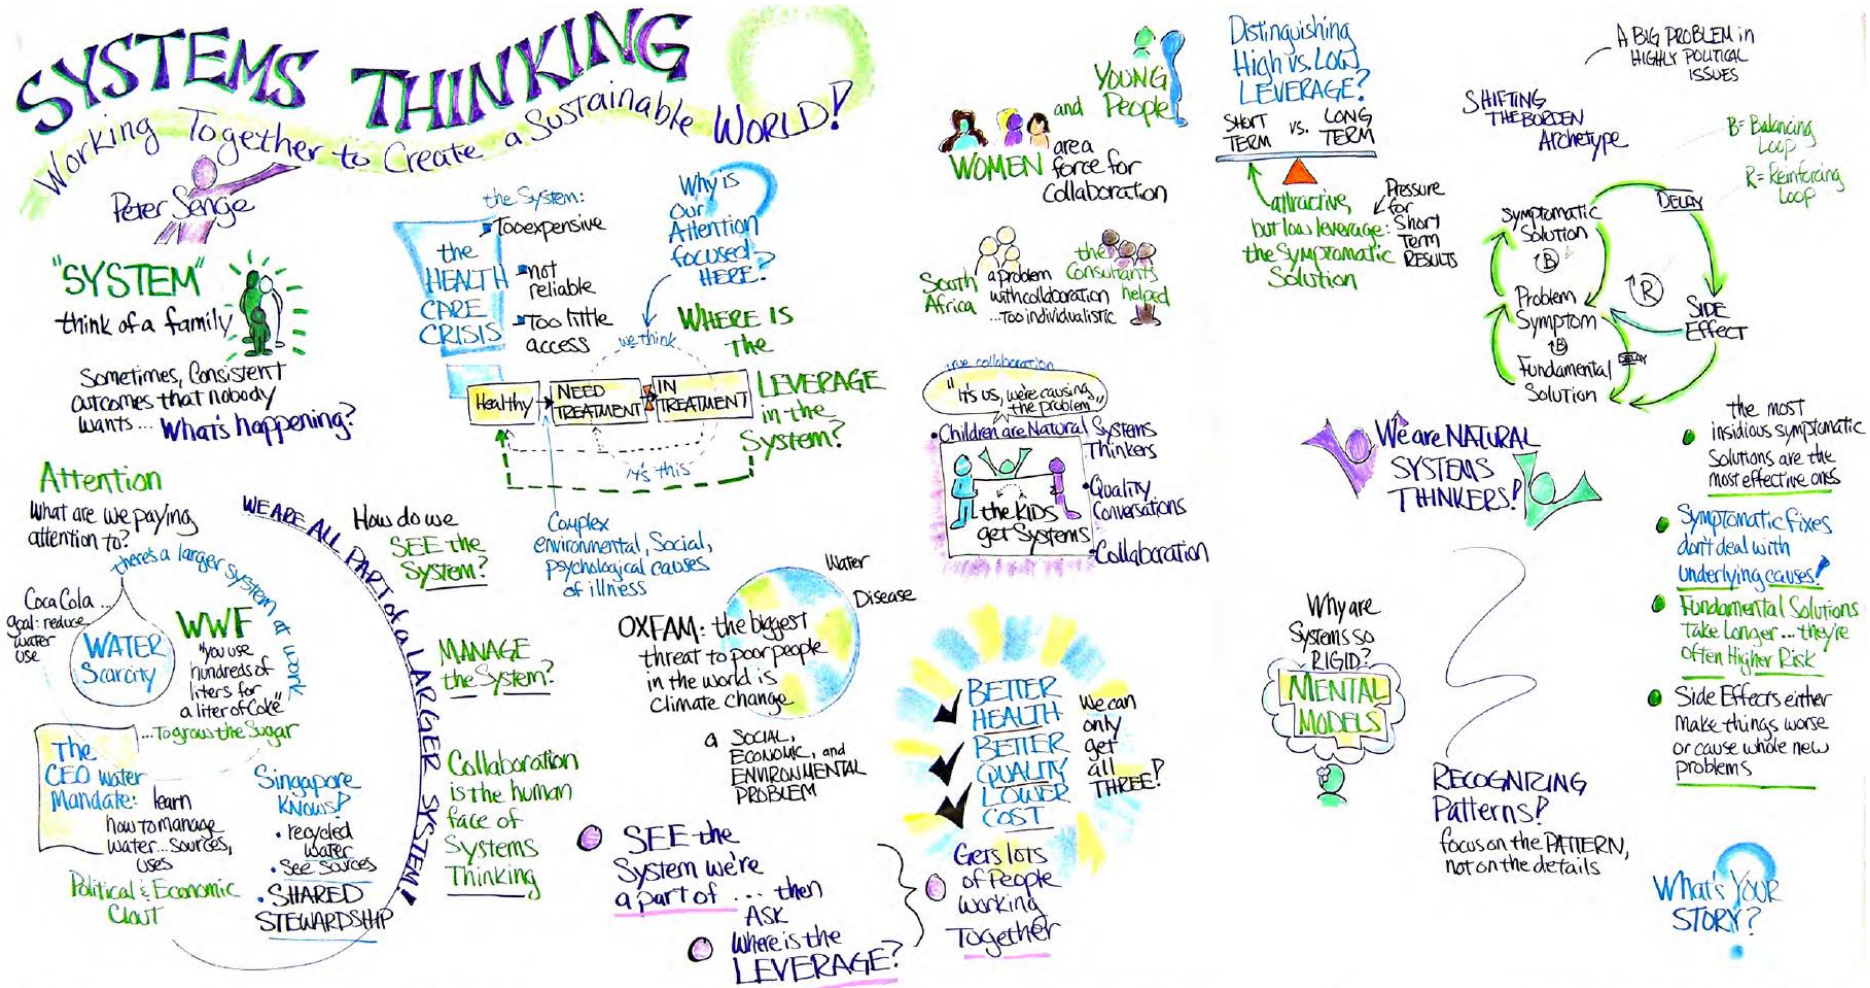 SYSTEMS THINKING
Working Together to Create a Sustainable WORLD!
Peter Senge
"SYSTEM"
think of a family
Sometimes, Consistent
outcomes that nobody
wants ... What's happening?
Attention
What are we paying
attention to?
there's a larger system at work
Coca Cola ...
goal: reduce
water
use
WATER
Scarcity
WWF
"you use
hundreds of
liters for
a liter of Coke"
...To grow the Sugar
The
CEO water
Mandate: learn
how to manage
water... sources,
uses
Political & Economic
Clout
Singapore
KNOWS!
• recycled
water
• See Sources
• SHARED
STEWARDSHIP
WE ARE ALL PART of a LARGER SYSTEM!
the System:
the
HEALTH
CARE
CRISIS
Too expensive
not
reliable
Too little
access
Why is
Our
Attention
focused
HERE?
we think
WHERE IS
The
LEVERAGE
in the
System?
Healthy
NEED
TREATMENT
IN
TREATMENT
it's this
Complex
environmental, Social,
psychological causes
of illness
How do we
SEE the
System?
MANAGE
the System?
Collaboration
is the human
face of
Systems
Thinking
Water
Disease
OXFAM: the biggest
threat to poor people
in the world is
climate change
a SOCIAL,
ECONOMIC, and
ENVIRONMENTAL
PROBLEM
SEE the
System we're
a part of .... then
ASK
Where is the
LEVERAGE?
YOUNG
and People
WOMEN are a
force for
Collaboration
South
Africa
a problem
with collaboration
...Too individualistic
the
Consultants
helped
true collaboration
"It's us, we're causing
the problem"
• Children are Natural Systems
Thinkers
the KIDS
get Systems
• Quality
Conversations
• Collaboration
BETTER
HEALTH
BETTER
QUALITY
LOWER
COST
We can
only
get
all
THREE!
Gets lots
of People
working
Together
Distinguishing
High vs. LOW
LEVERAGE?
SHORT
TERM
vs.
LONG
TERM
attractive,
but low leverage:
the Symptomatic
Solution
Pressure
for
Short
Term
RESULTS
A BIG PROBLEM in
HIGHLY POLITICAL
ISSUES
SHIFTING
THE BURDEN
Archetype
B= Balancing
Loop
R= Reinforcing
Loop
Symptomatic
Solution
B
DELAY
R
Problem
Symptom
B
DELAY
SIDE
Effect
Fundamental
Solution
We are NATURAL
SYSTEMS
THINKERS!
Why are
Systems so
RIGID?
MENTAL
MODELS
RECOGNIZING
Patterns!
focus on the PATTERN,
not on the details
the most
insidious symptomatic
Solutions are the
most effective ones
Symptomatic fixes
don't deal with
underlying causes!
Fundamental Solutions
Take Longer ... they're
often Higher Risk
Side Effects either
make things worse
or cause whole new
problems
What's YOUR
STORY?